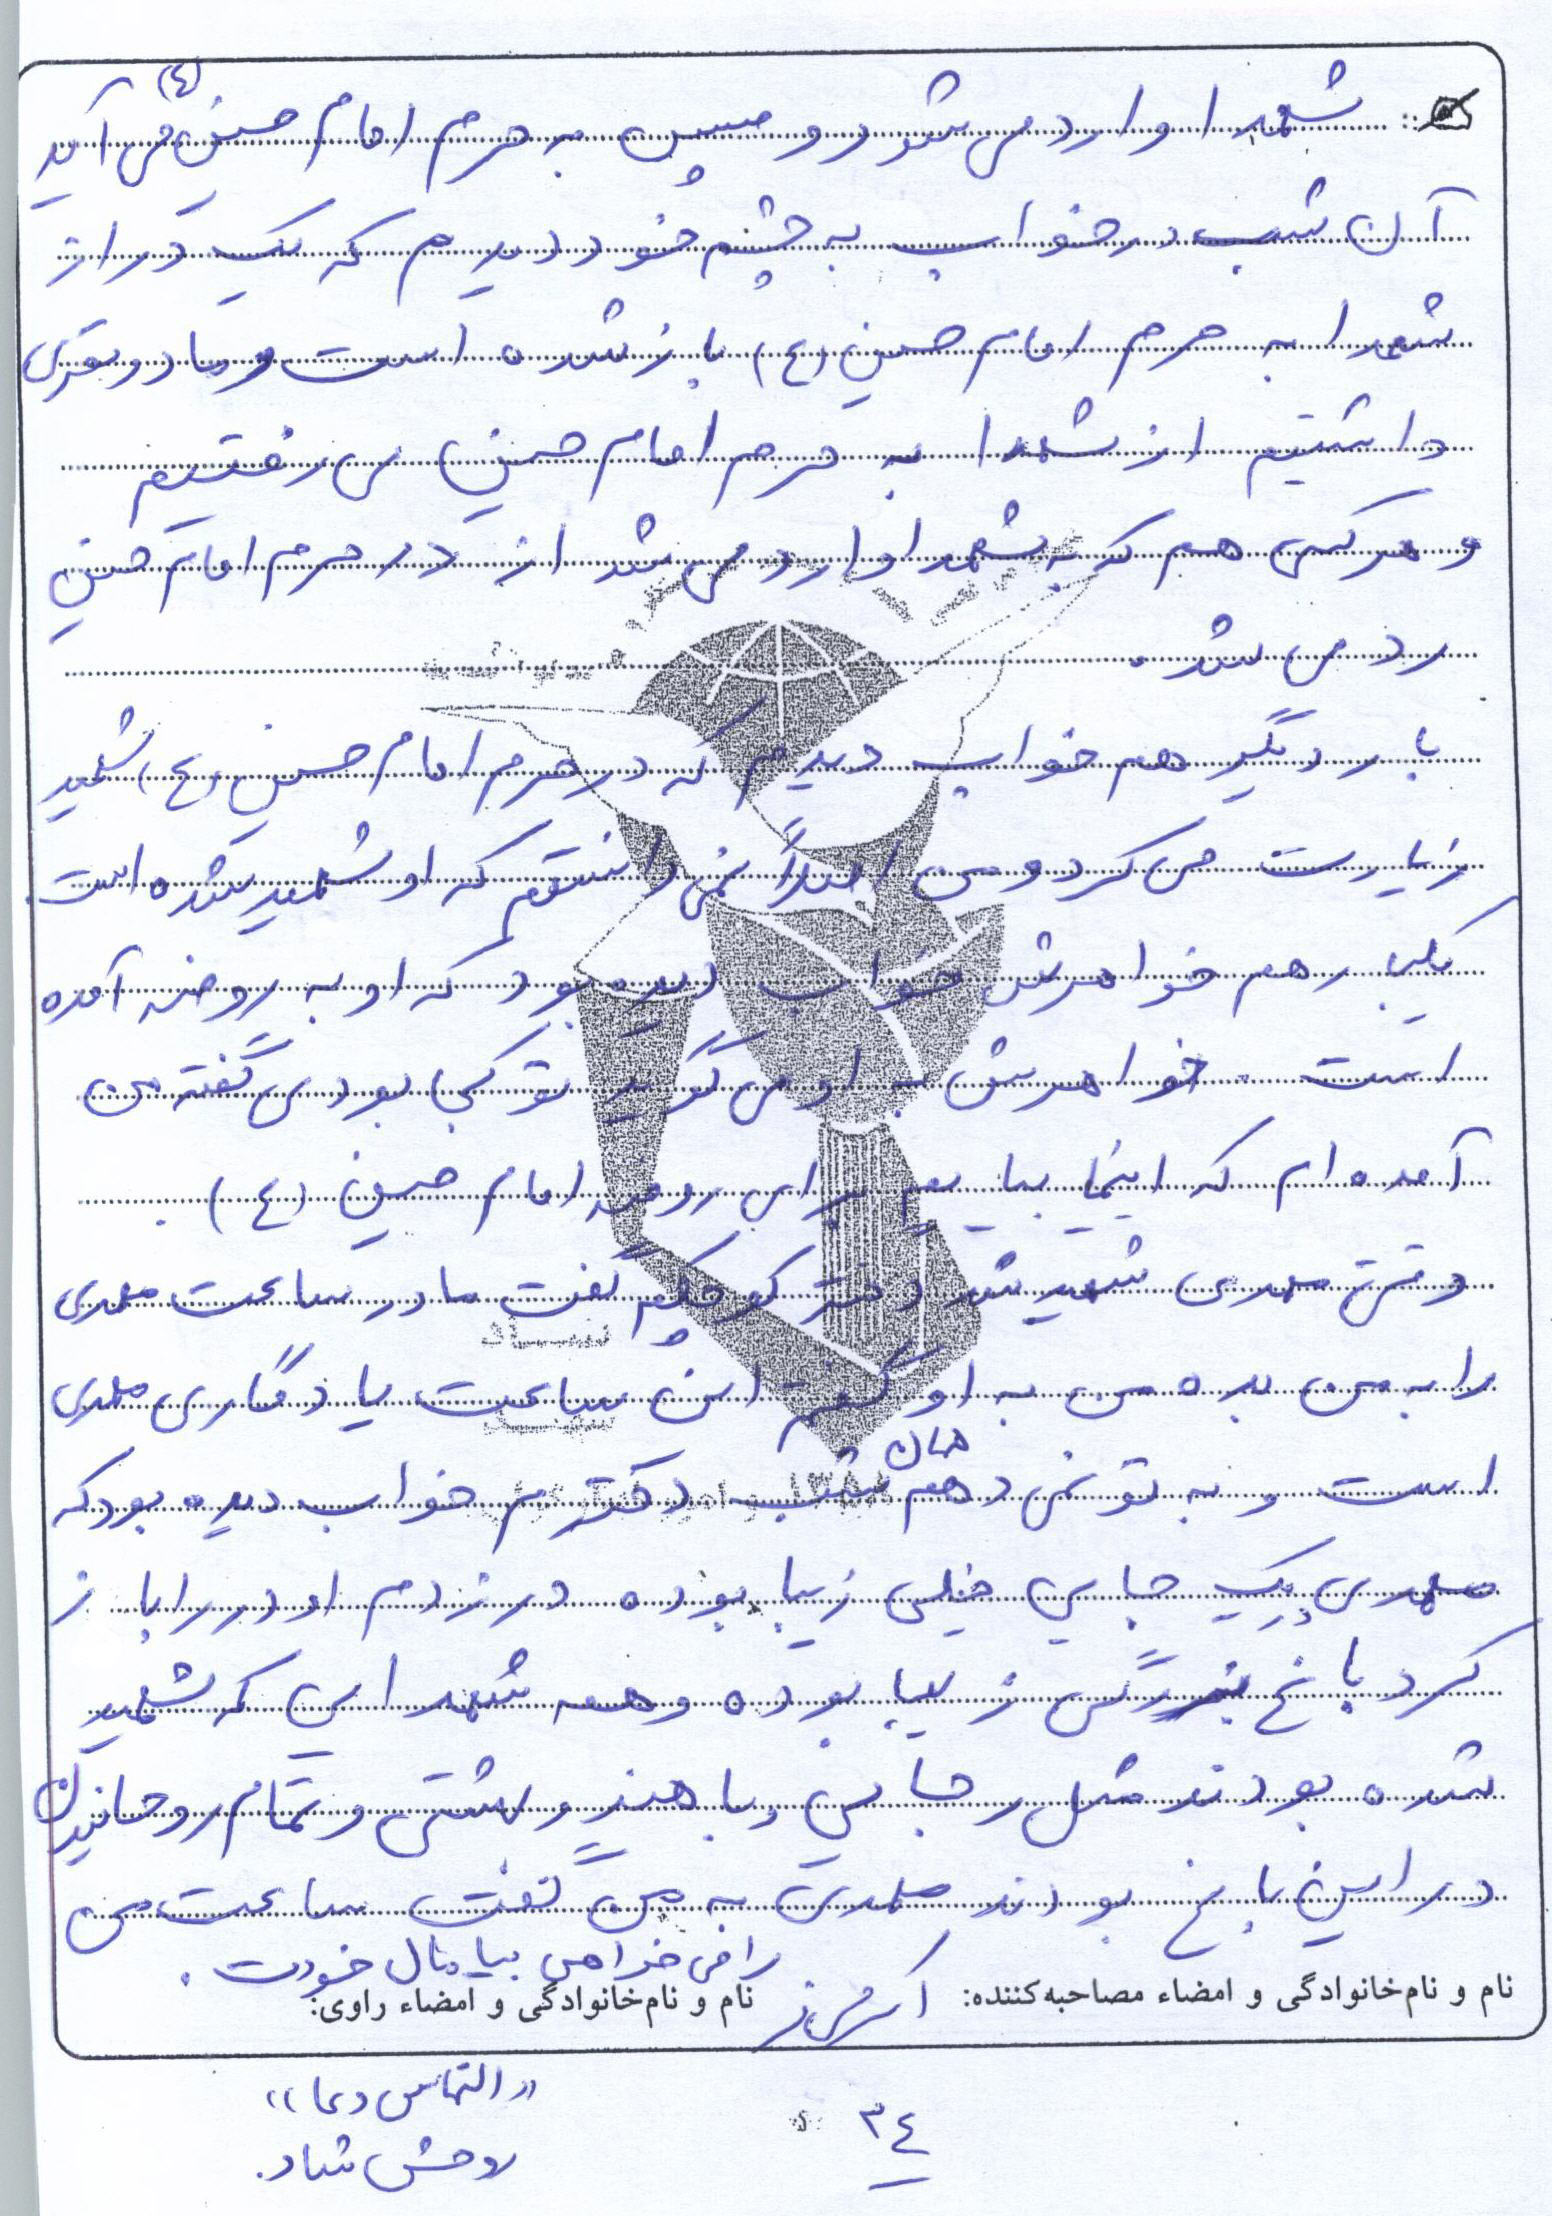 شهدا وارد می شود و سپس به حرم امام حسین (ع) می آید
آن شب در خواب به چشم خود دیدم که یک در از
شهدا به حرم امام حسین (ع) باز شده است و ما دو نفری
داشتیم از شهدا به حرم امام حسین می رفتیم
و هر کسی هم که به شهدا وارد می شد از در حرم امام حسین
رد می شد.
بار دیگر هم خواب دیدم که در حرم امام حسین (ع) شهید
زیارت می کرد و من اصلاً نمی دانستم که او شهید شده است.
یکبار هم خواهرش خواب دیده بود که او به روضه آمده
است. خواهرش به او می گوید تو کجا بودی گفته من
آمده ام که اینجا بیایم برای روضه امام حسین (ع).
وقتی مهدی شهید شد دختر کوچکم گفت مادر ساعت مهدی
را به من بده من به او گفتم این ساعت یادگاری مهدی
است و به تو نمی دهم همان شب دخترم خواب دیده بود که
مهدی یک جایی خیلی زیبا بوده در زدم او در را باز
کرد باغ بزرگی زیبا بوده و همه شهدایی که شهید
شده بودند مثل رجایی و باهنر و بهشتی و تمام روحانیون
در این باغ بودند مهدی به من گفت ساعت من
را می خواهی بیا مال خودت.
نام و نام‌خانوادگی و امضاء مصاحبه‌کننده: نام و نام‌خانوادگی و امضاء راوی:
«التماس دعا»
روحش شاد.
۳۴